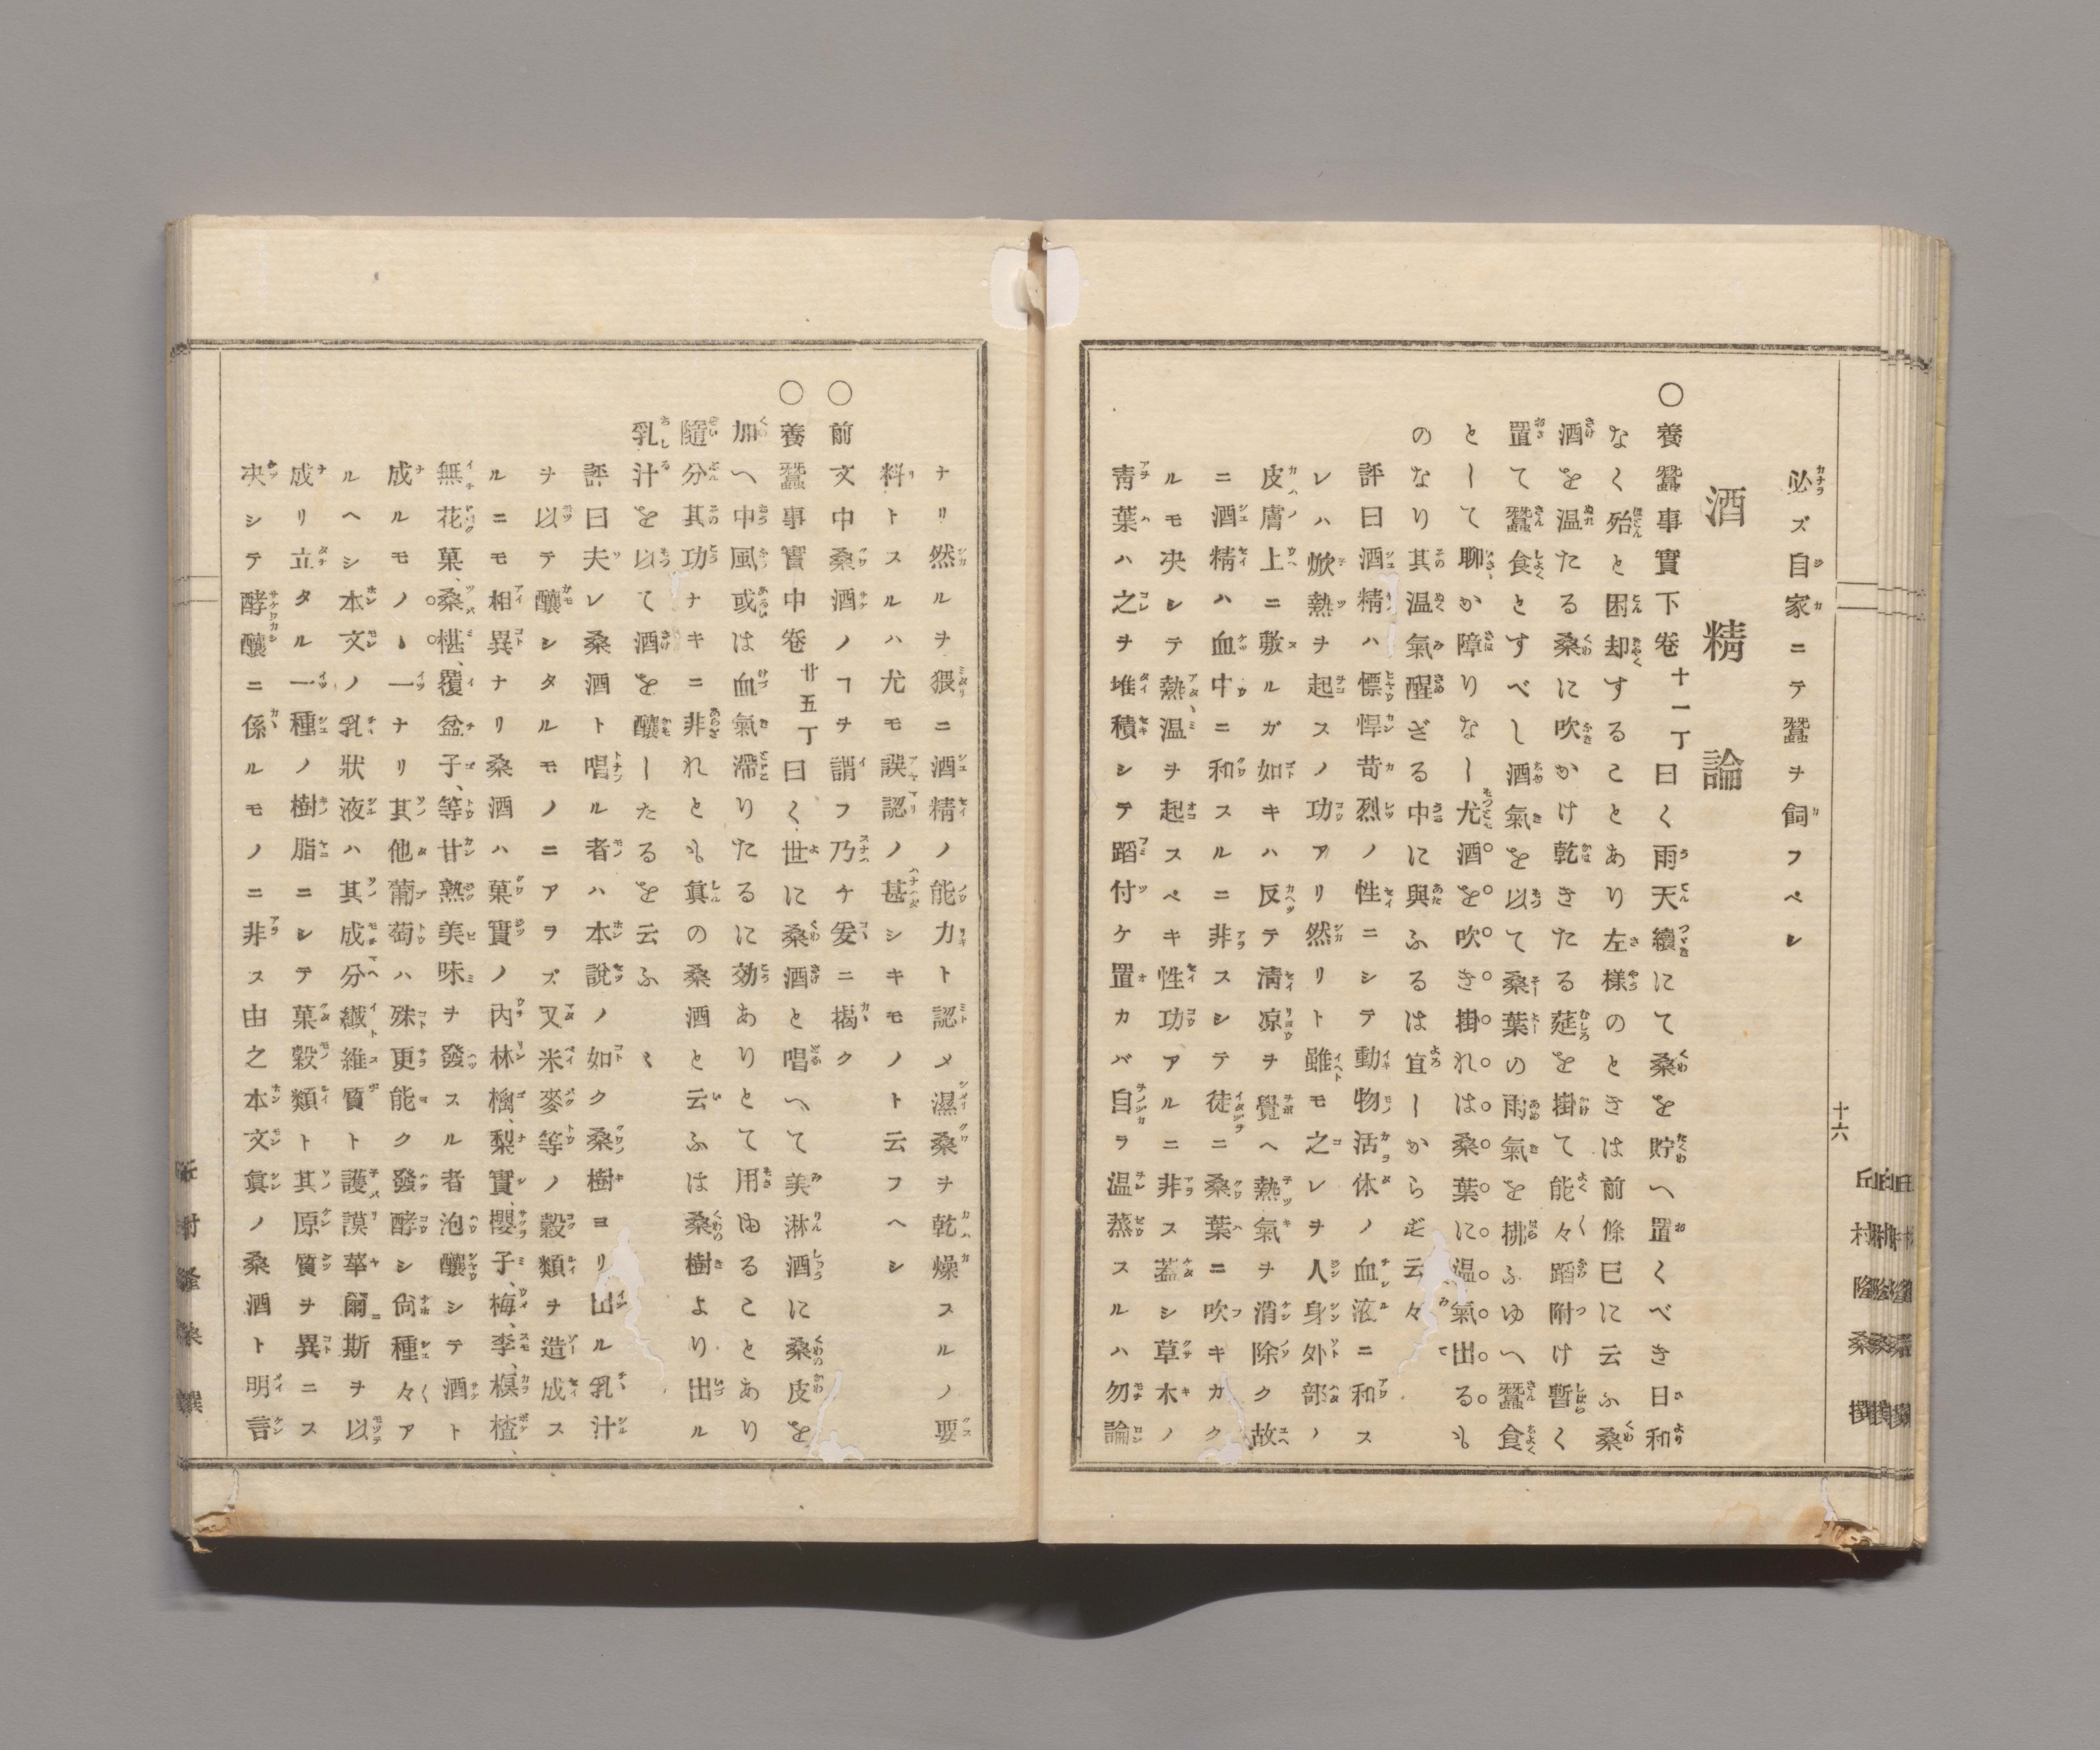 必ズ自家ニテ蠶ヲ飼フベシ
酒精論
〇養蠶事實下卷十一丁曰く雨天續にて桑を貯へ置くべき日和
なく殆と困却することあり左様のときは前條巳に云ふ桑
酒を温たる桑に吹かけ乾きたる莚を掛て能々蹈附け暫く
置て蠶食とすべし酒氣を以て桑葉の雨氣を拂ふゆへ蠶食
として聊か障りなし尤酒を吹き掛れは桑葉に温氣出るも
のなり其温氣醒ざる中に與ふるは宜しからず云々
評曰酒精ハ慓悍苛烈ノ性ニシテ動物活体ノ血液ニ和ス
レハ焮熱ヲ起スノ功アリ然リト雖モ之レヲ人身外部ノ
皮膚上ニ敷ルガ如キハ反テ淸凉ヲ覺ヘ熱氣ヲ消除ク故
ニ酒精ハ血中ニ和スルニ非スシテ徒ニ桑葉ニ吹キカク
ルモ决シテ熱温ヲ起スペキ性功アルニ非ス蓋シ草木ノ
靑葉ハ之ヲ堆積シテ蹈付ケ置カバ自ヲ温蒸スルハ勿論
十六
ナリ然ルヲ猥ニ酒精ノ能力ト認メ濕桑ヲ乾燥スルノ要
料トスルハ尤モ誤認ノ甚シキモノト云フヘシ
〇前文中桑酒ノヿヲ謂フ乃チ爰ニ揭ク
〇養蠶事實中卷廿五丁曰く世に桑酒と唱へて美淋酒に桑皮を
加へ中風或は血氣滯りたるに効ありとて用ゆることあり
隨分其功ナキニ非れとも眞の桑酒と云ふは桑樹より出ル
乳汁を以て酒を釀したるを云ふ〱
評曰夫レ桑酒ト唱ルル者ハ本說ノ如ク桑樹ヨリ出ル乳汁
ヲ以テ釀シタルモノニアヲズ又米麥等ノ穀類ヲ造成ス
ルニモ相異ナリ桑酒ハ菓實ノ內林檎、梨實、櫻子、梅、李、榠樝、
無花菓、桑椹、覆盆子、等甘熟美味ヲ發スル者泡釀シテ酒ト
成ルモノヽ一ナリ其他葡萄ハ殊更能ク發酵シ尙種々ア
ルヘシ本文ノ乳狀液ハ其成分纖維質ト護謨華爾斯ヲ以
成リ立タル一種ノ樹脂ニシテ菓穀類ト其原質ヲ異ニス
决シテ酵釀ニ係ルモノニ非ス由之本文眞ノ桑酒ト明言